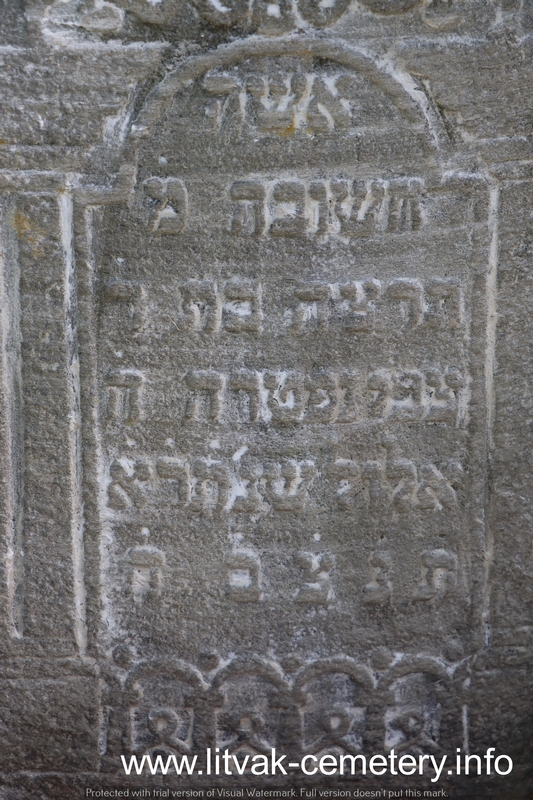 אשה
חשובה מ
בת ר
צבי נפטרה ה
אלול
ת נ צ ב ה
www.litvak-cemetery.info
Protected with trial version of Visual Watermark. Full version doesn't put this mark.